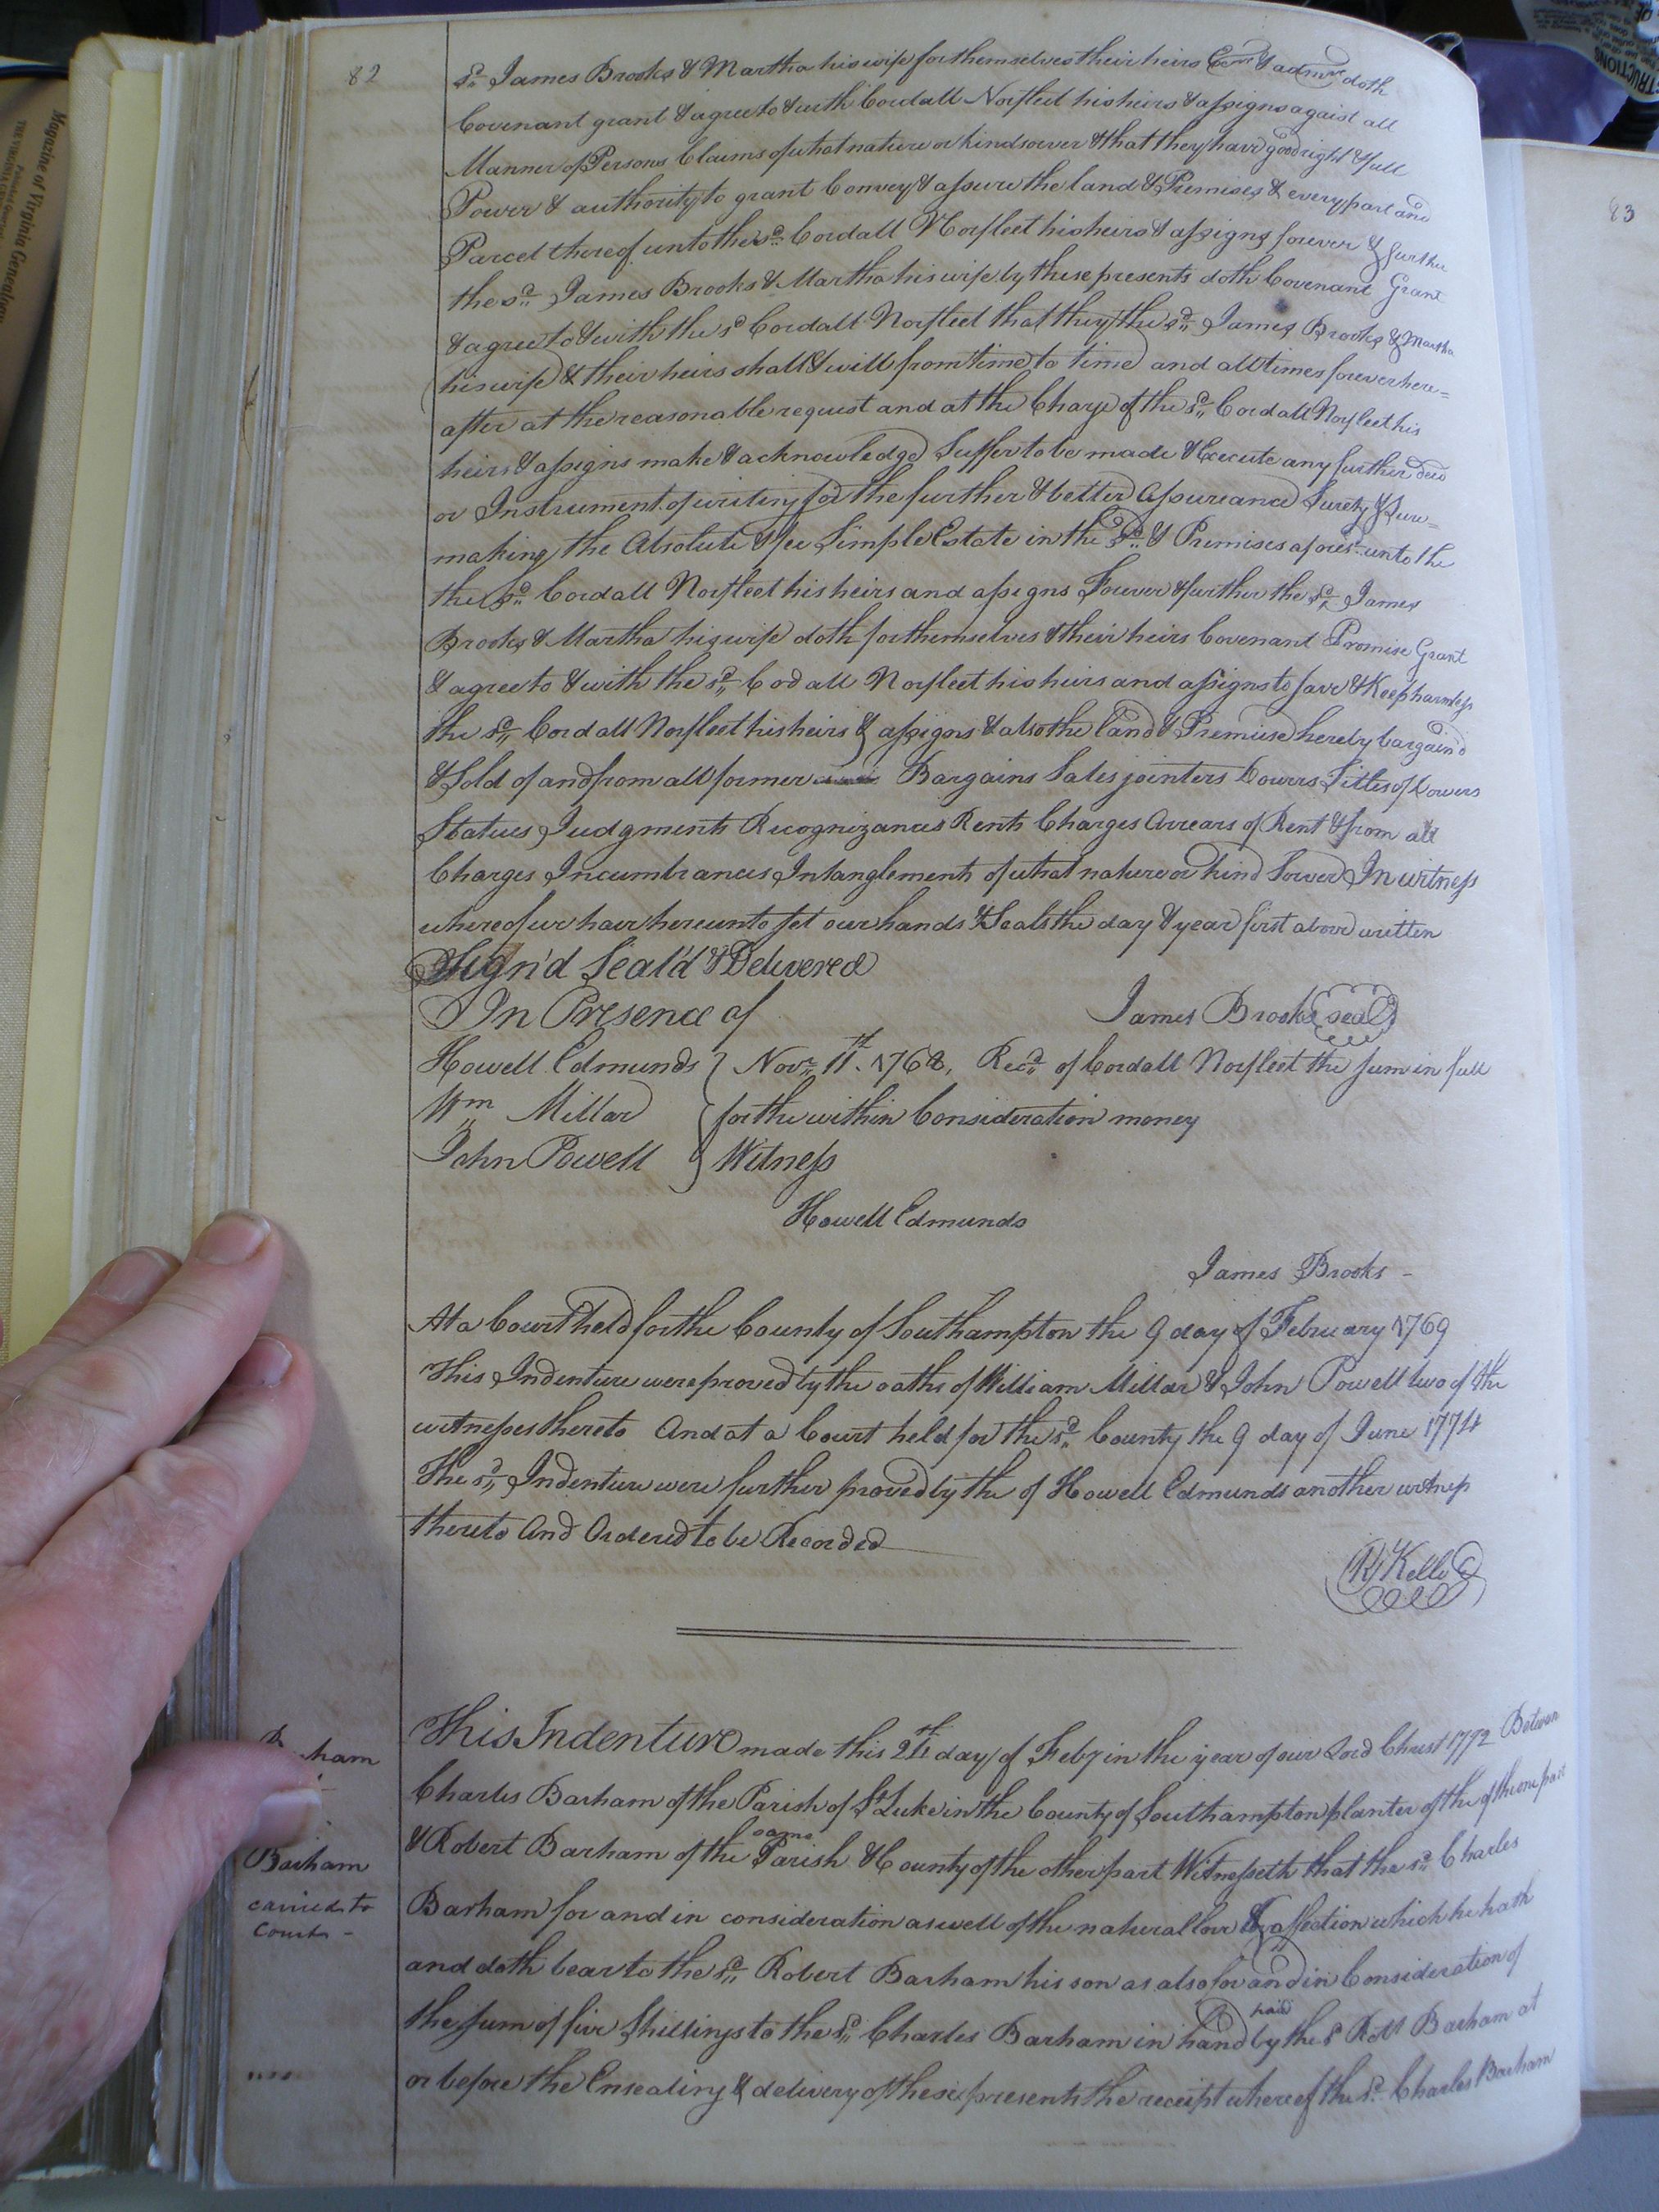 82
sd. James Brooks & Martha his wife for themselves their heirs Exrs & admrs doth
Covenant grant & agree to & with Cordall Norfleet his heirs & assigns agaist all
Manner of Persons Claims of what nature or kind soever & that they have good right & full
Power & authority to grant Convey & assure the land & Premises & every part and
Parcel thereof unto the sd. Cordall Norfleet his heirs & assigns forever & further
the sd. James Brooks & Martha his wife by these presents doth Covenant Grant
& agree to & with the sd Cordall Norfleet that they the sd. James Brooks & Martha
his wife & their heirs shall & will from time to time and all times forever here=
after at the reasonable request and at the Charge of the sd. Cordall Norfleet his
heirs & assigns make & acknowledge Suffer to be made & Execute any further deed
or Instrument of writing for the further & better Assureance Surety & Sure=
making the Absolute & fee Simple Estate in the sd. & Premises aforesd. unto the
the sd. Cordall Norfleet his heirs and assigns Forever & further the sd. James
Brooks & Martha his wife doth for themselves & their heirs Covenant Promise Grant
& agree to & with the sd. Codall Norfleet his heirs and assigns to save & Keep harmless
the sd. Cordall Norfleet his heirs & assigns & also the land & Premise hereby bargain'd
& Sold of and from all former Bargains Sales jointers Dowers Titles of Dowers
Statues Judgments Recognizances Rents Charges Arrears of Rent & from all
Charges Incumbrances Intanglements of what nature or kind Soever In witness
whereof we have hereunto set our hands & Seals the day & year first above written
Sign'd Seal'd & Delivered
In Presence of
James Brooks seal
Howell Edmunds } Novr. 11th. 1768, Recd. of Cordall Norfleet the sum in full
Wm Millar { for the within Consideration money
John Powell } Witness
Howell Edmunds
James Brooks -
At a Court held for the County of Southampton the 9 day of February 1769
This Indenture were proved by the oaths of William Millar & John Powell two of the
witnesses thereto And at a Court held for the sd. County the 9 day of June 1774
The sd. Indenture were further proved by the of Howell Edmunds another witness
thereto And Ordered to be Recorded
R Kello C
This Indenture made this day of Feby in the year of our Lord Christ 1772 Between
Charles Barham of the Parish of St Luke in the County of Southampton planter of the of the one part
& Robert Barham of the same Parish & County of the other part Witnesseth that the sd. Charles
Barham for and in consideration as well of the natural love & affection which he hath
and doth bear to the sd. Robert Barham his son as also for and in Consideration of
the sum of five Shillings to the sd. Charles Barham in hand paid by the sd Robt Barham at
or before the Ensealing & delivery of these presents the receipt whereof the sd. Charles Barham
Barham
carried to
Courts -
83
Magazine of Virginia Genealogy